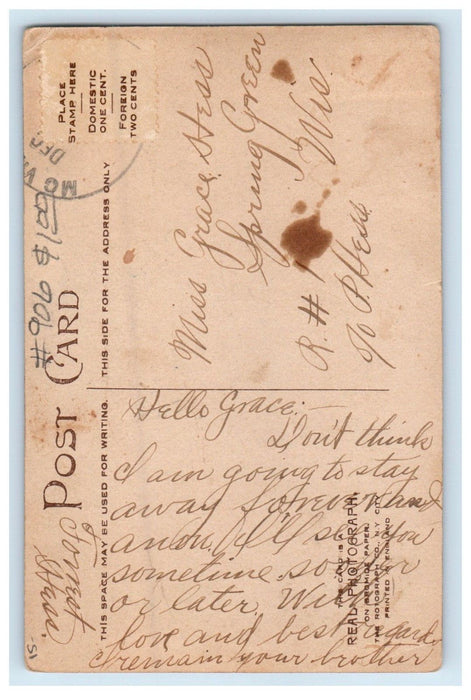 POST CARD
THIS SPACE MAY BE USED FOR WRITING. THIS SIDE FOR THE ADDRESS ONLY
PLACE
STAMP HERE
DOMESTIC
ONE CENT.
FOREIGN
TWO CENTS
DEC
MC V
#906
Miss Grace Hess
Spring Green
R. #1 Wis
% P. Hess
Hello Grace:-
Don't think
I am going to stay
away forever and
anon. I'll see you
sometime sooner
or later. With
love and best regards
I remain your brother
Forrest
Hess.
THIS CARD IS A
REAL PHOTOGRAPH,
ON BROMIDE PAPER.
THE ROTOGRAPH CO., N.Y. CITY
PRINTED IN ENGLAND
51